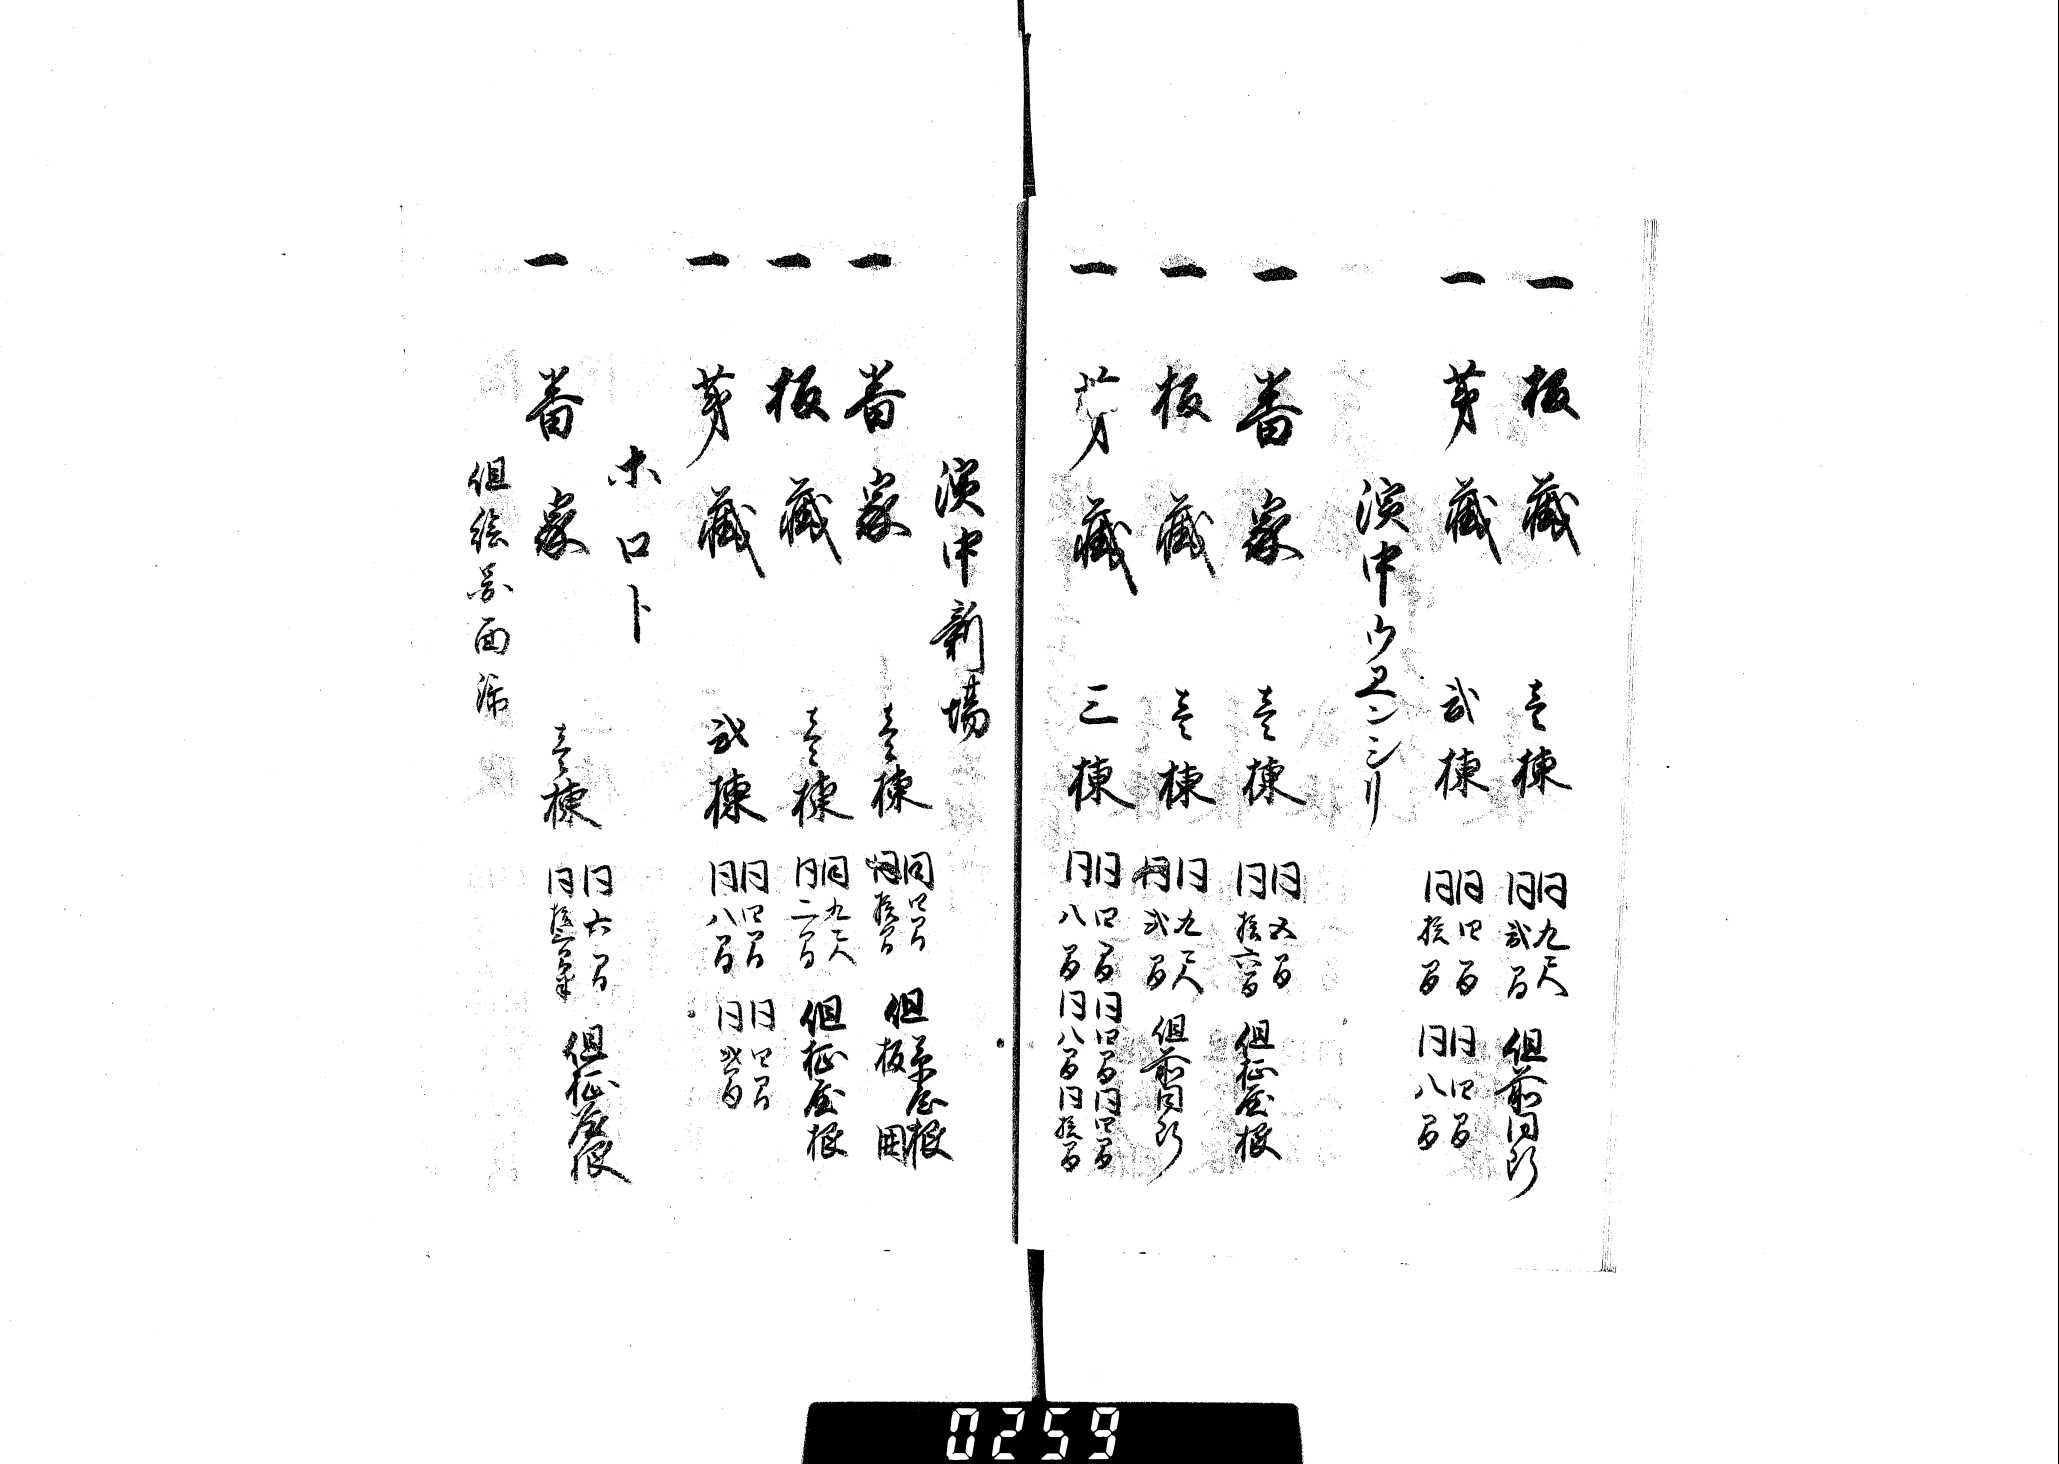 一 板藏 壱棟 同九尺 同弐間 但前同断
一 茅藏 弐棟 同四間 同拾間 同四間 同八間
濱中ウヱンシリ
一 番家 壱棟 同五間 同拾六間 但柾屋根
一 板藏 壱棟 同九尺 同弐間 但前同断
一 茅藏 三棟 同四間 同八間 同四間 同八間 同四間 同拾間
濱中新場
一 番家 壱棟 同四間 同拾間 但茅屋根 板囲
一 板藏 壱棟 同九尺 同二間 但柾屋根
一 茅藏 弐棟 同四間 同八間 同四間 同弐間
ホロト
一 番家 壱棟 同六間 同拾三間半 但柾屋根
但絵図面漏
0259